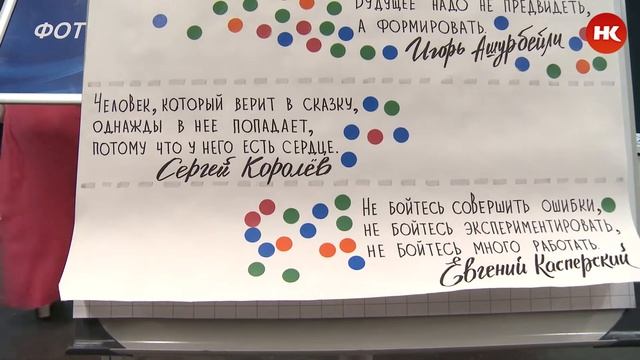 ФОТ
НК
БУДУЩЕЕ НАДО НЕ ПРЕДВИДЕТЬ,
А ФОРМИРОВАТЬ.
Игорь Ашурбейли
ЧЕЛОВЕК, КОТОРЫЙ ВЕРИТ В СКАЗКУ,
ОДНАЖДЫ В НЕЕ ПОПАДАЕТ,
ПОТОМУ ЧТО У НЕГО ЕСТЬ СЕРДЦЕ.
Сергей Королёв
НЕ БОЙТЕСЬ СОВЕРШИТЬ ОШИБКИ,
НЕ БОЙТЕСЬ ЭКСПЕРИМЕНТИРОВАТЬ,
НЕ БОЙТЕСЬ МНОГО РАБОТАТЬ.
Евгений Касперский